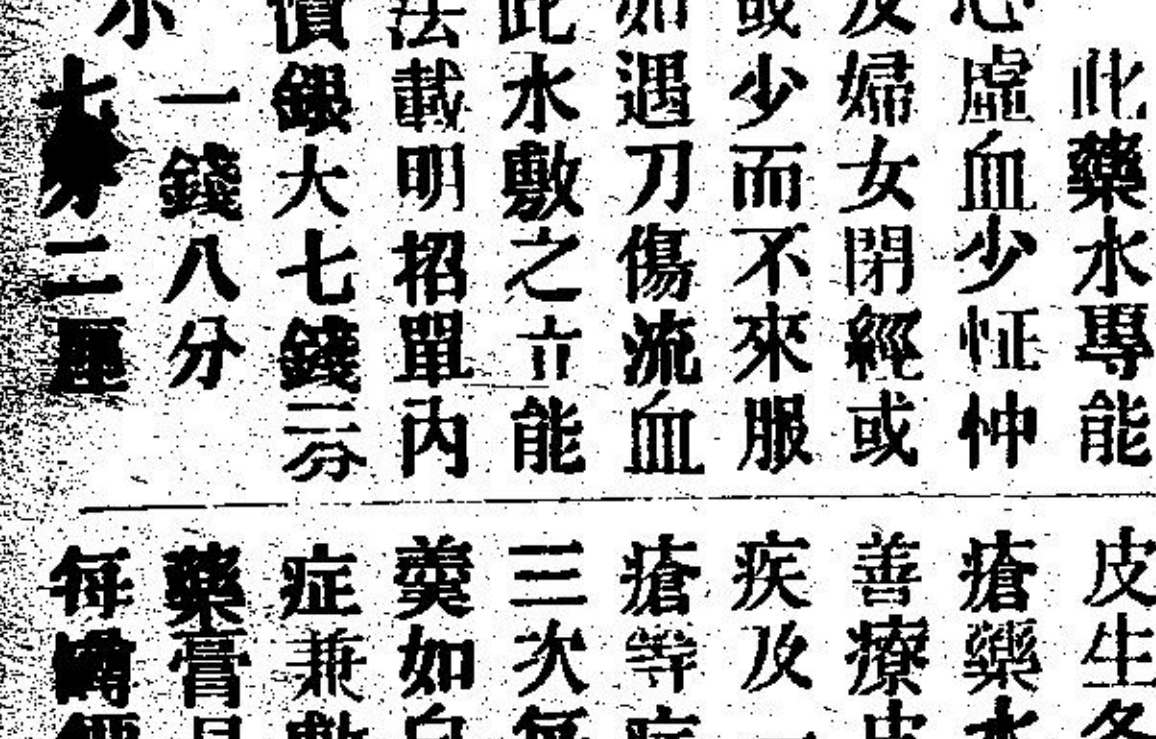 此藥水專能
心虛血少怔忡
及婦女閉經或
或少而不來服
如遇刀傷流血
此水敷之立能
法載明招單內
價銀大七錢二分
小一錢八分
七分二厘
皮生各
瘡藥水
善療皮
疾及一
瘡等症
三次每
羹如白
症兼敷
藥膏
每